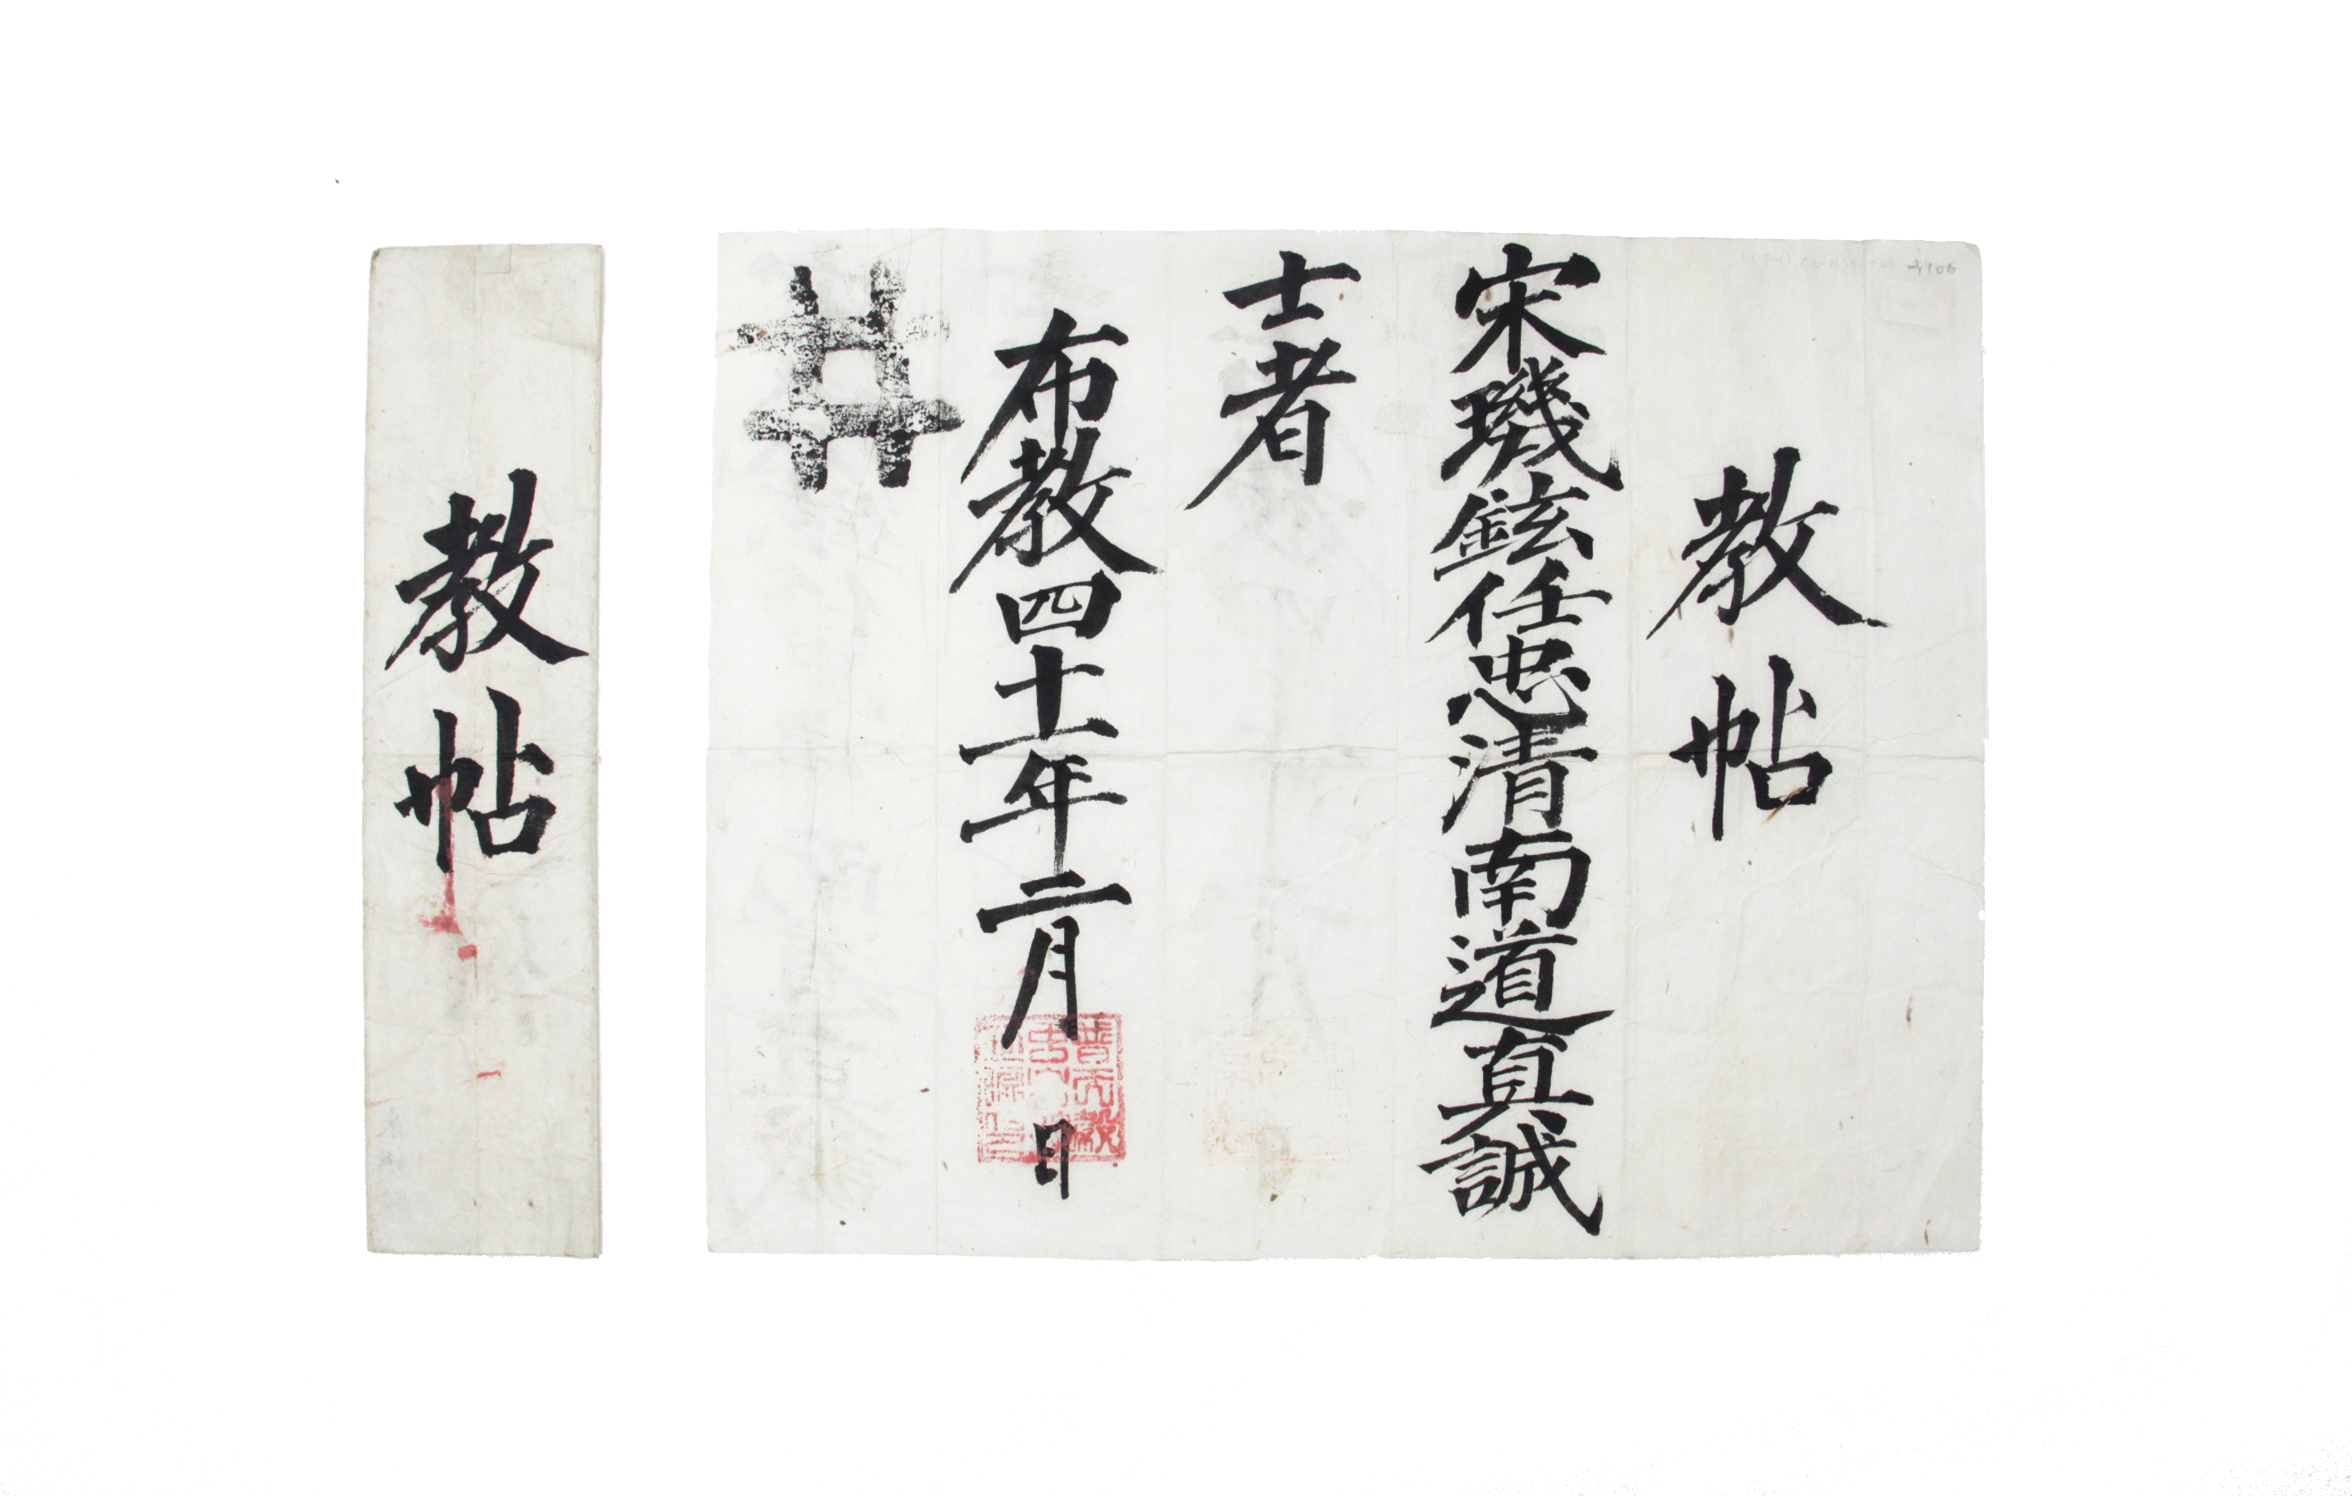 教帖
宋璣鉉任忠清南道真誠
士者
布教四十一年二月 日
教帖